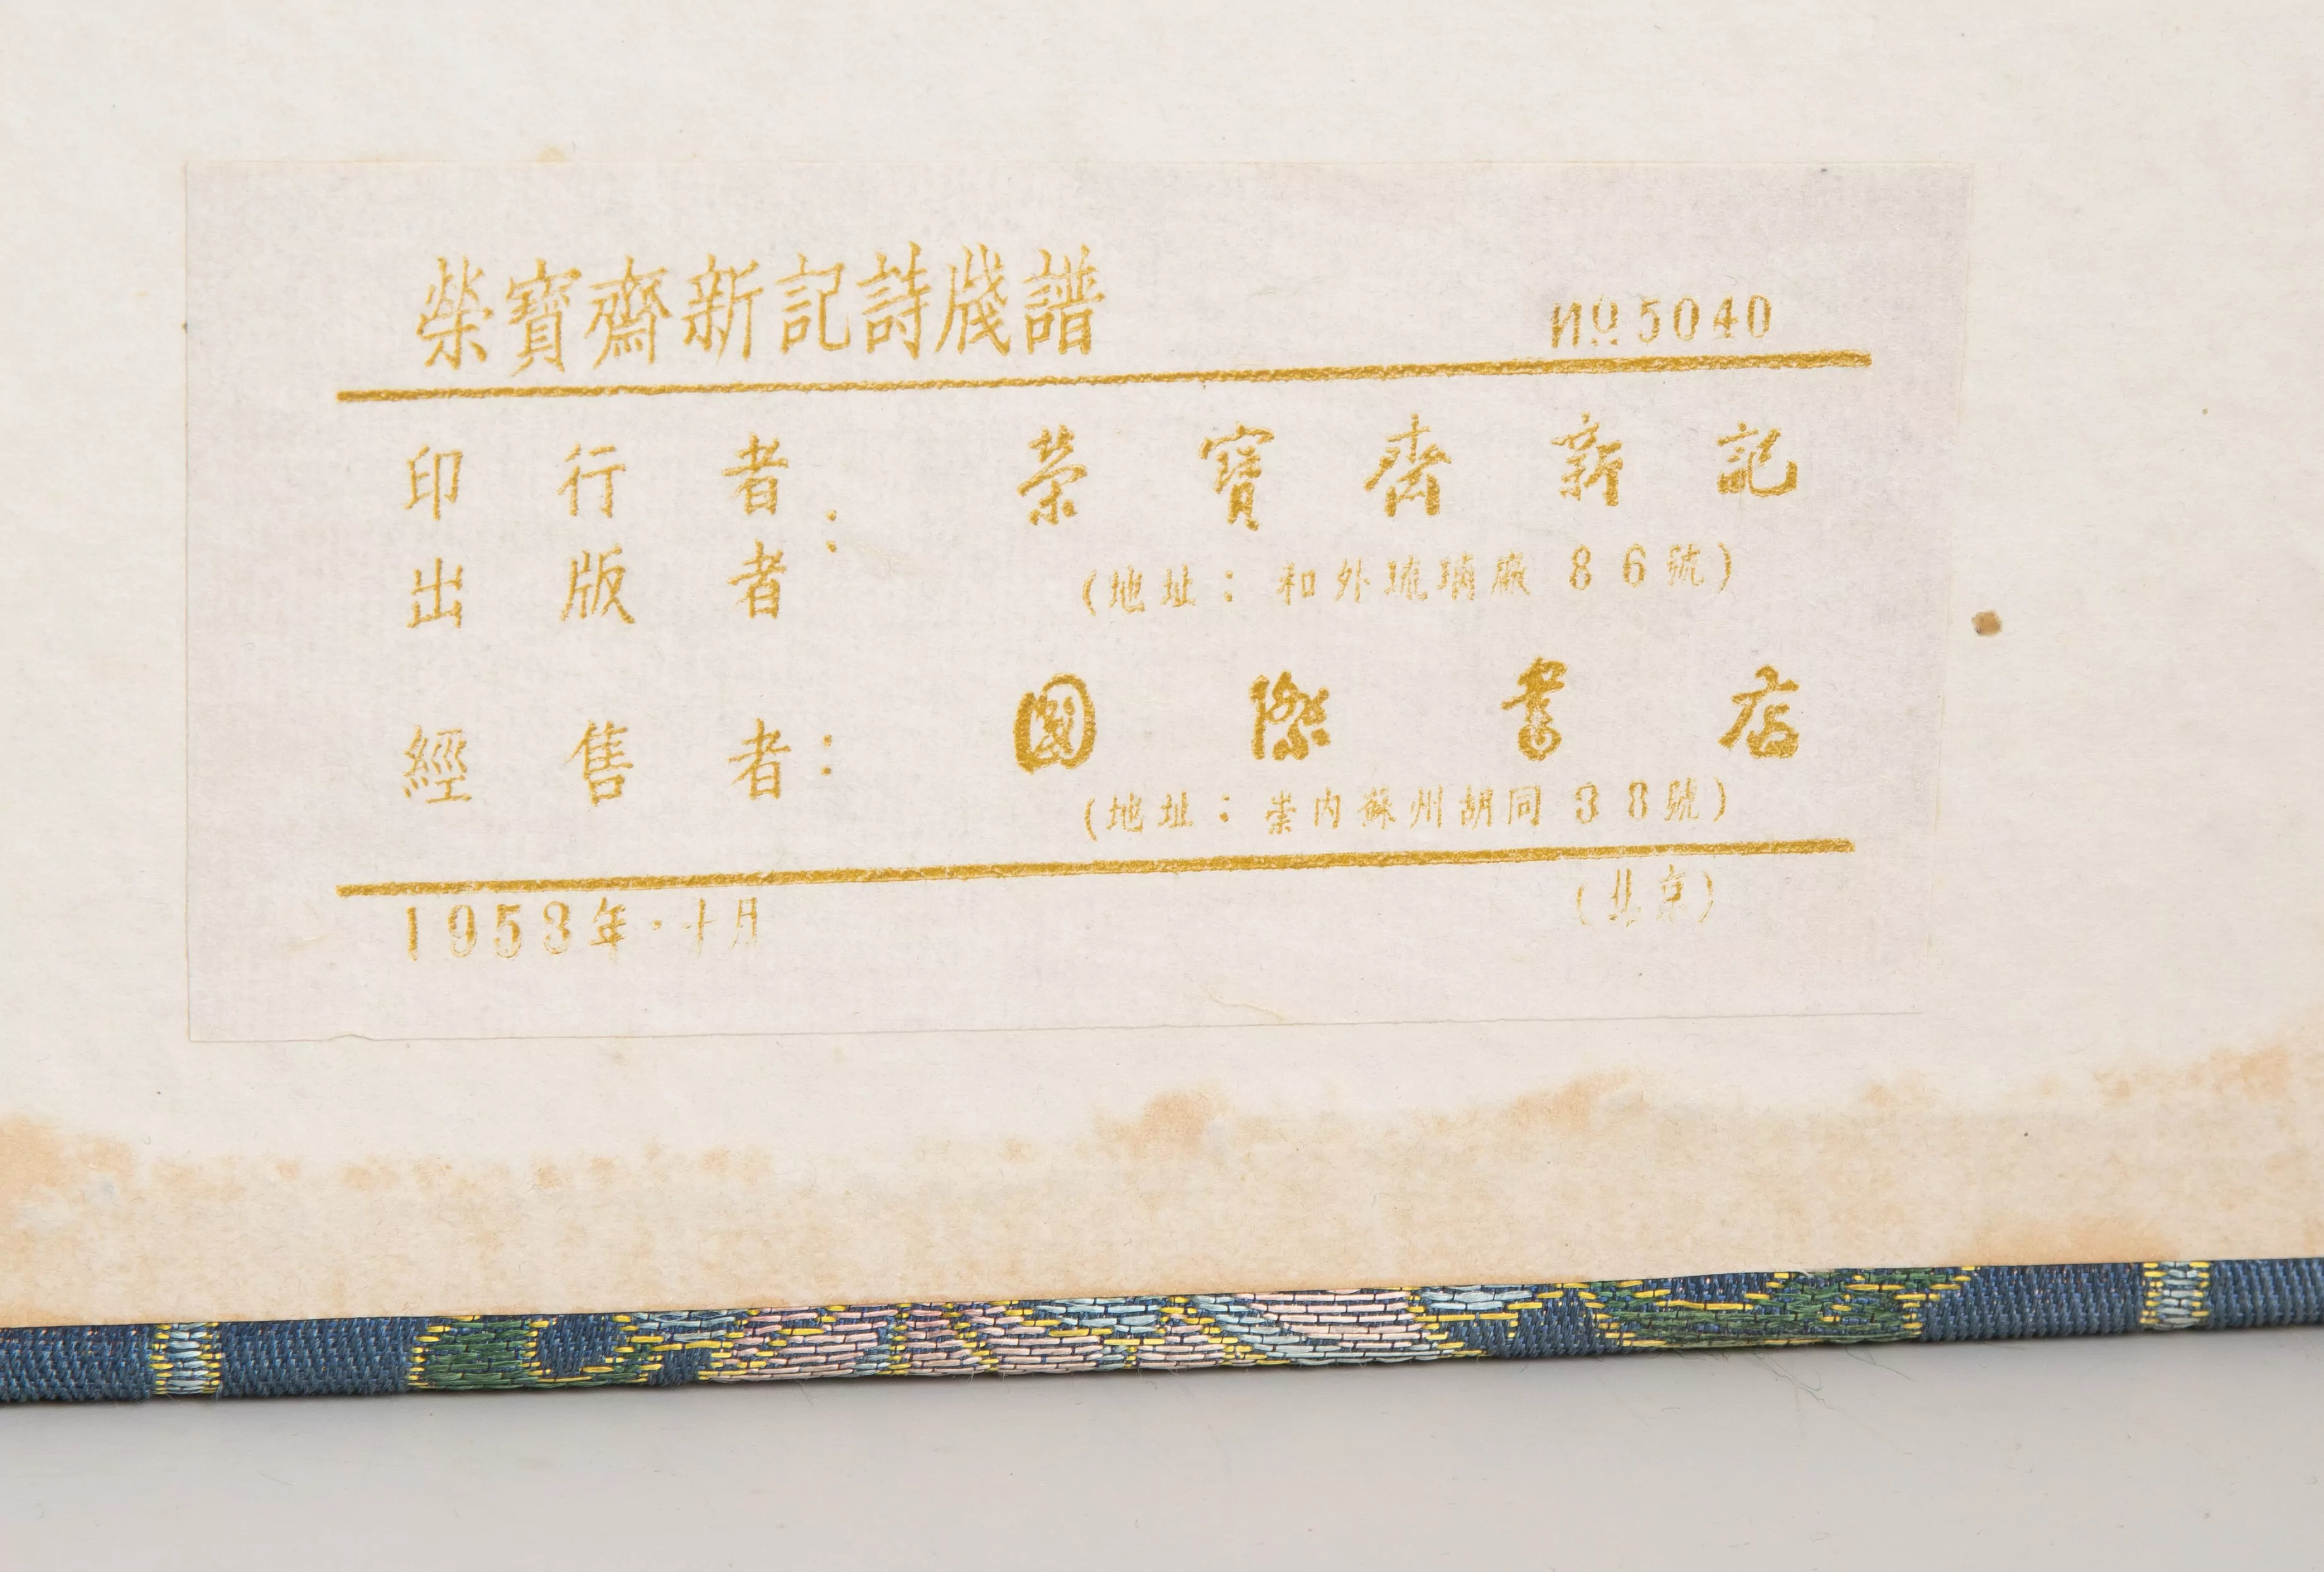 榮寶齋新記詩牋譜 No 5040
印行者
出版者 : 榮寶齋新記
(地址：和外琉璃廠86號)
經售者: 國際書店
(地址：崇内蘇州胡同38號)
1953年·十月 (北京)